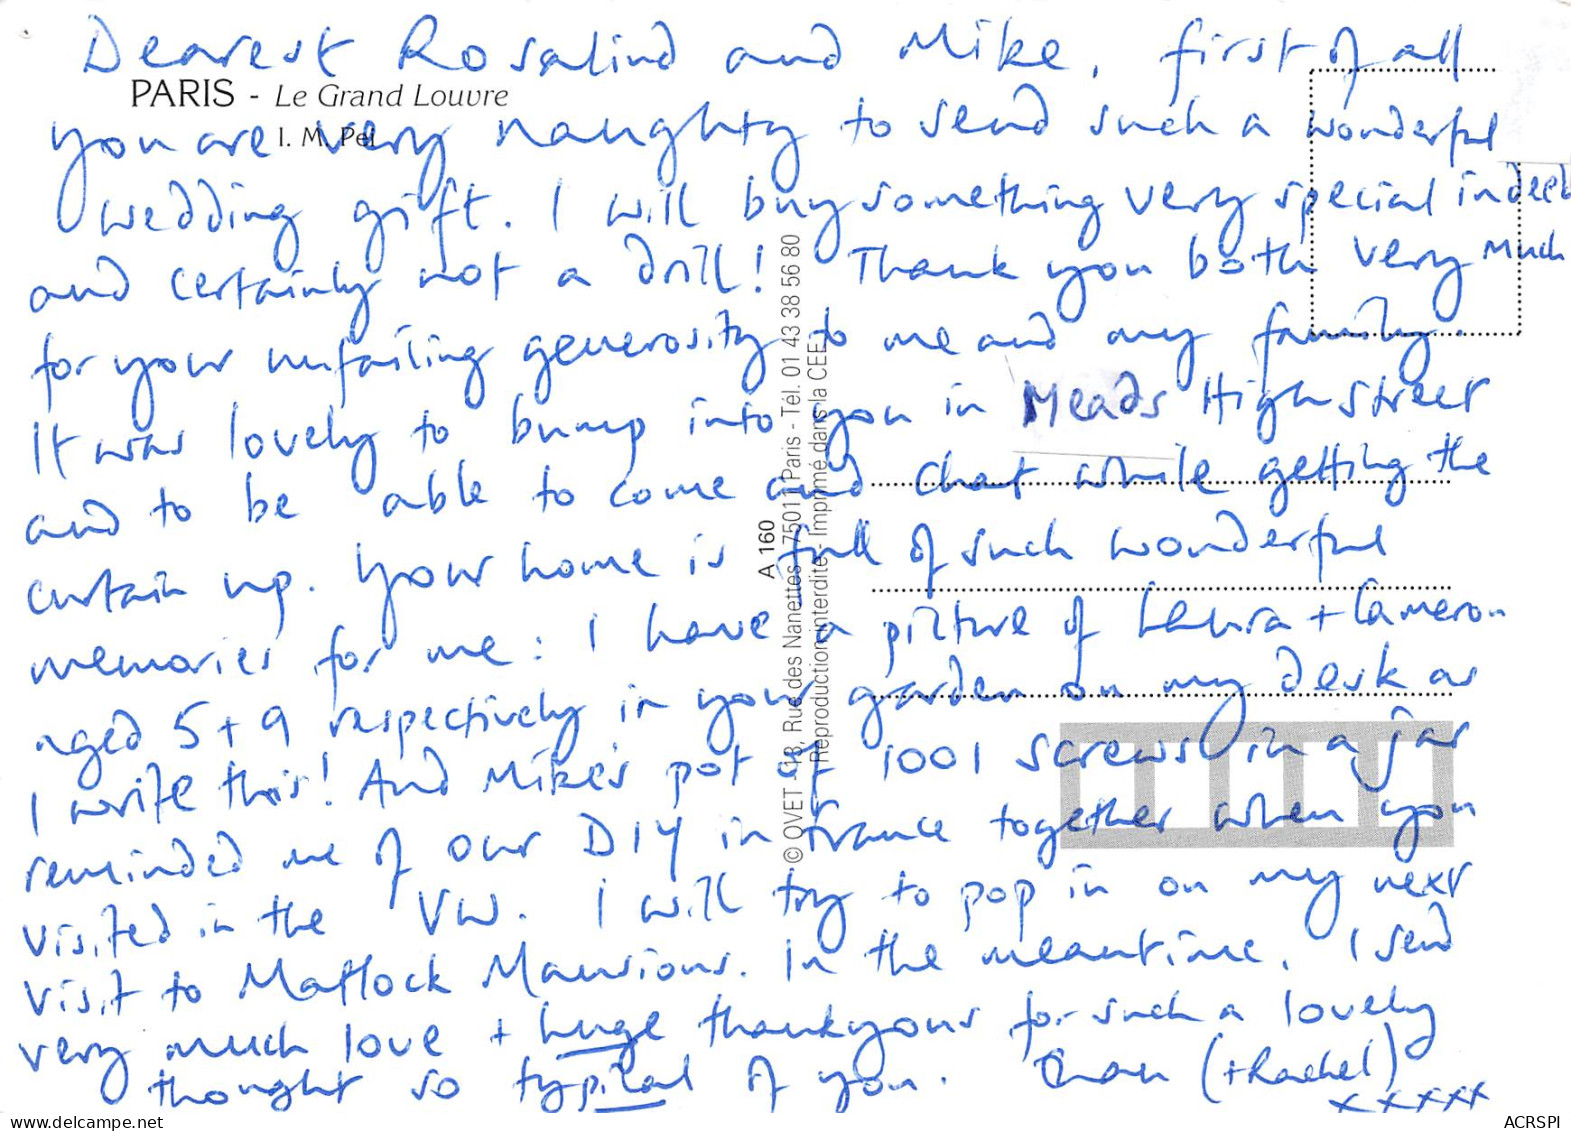 Dearest Rosalind and Mike, first of all
PARIS - Le Grand Louvre
I. M. Pei
you are very naughty to send such a wonderful
wedding gift. I will buy something very special indeed
and certainly not a drill! Thank you both very much
for your unfailing generosity to me and my family.
It was lovely to bump into you in Meads High Street
and to be able to come and chat while getting the
curtain up. Your home is full of such wonderful
memories for me: I have a picture of Laura + Cameron
aged 5 + 9 respectively in your garden on my desk as
I write this! And Mike's pot of 1001 screws in a jar
reminded me of our DIY in France together when you
visited in the VW. I will try to pop in on my next
visit to Matlock Mansions. In the meantime, I send
very much love + huge thankyous for such a lovely
thought so typical of you. (+ Rachel)
xxxxx
A 160
© OVET - 13, Rue des Nanettes - 75011 Paris - Tél. 01 43 38 56 80
Reproduction interdite - Imprimé dans la CEE
ACRSPI